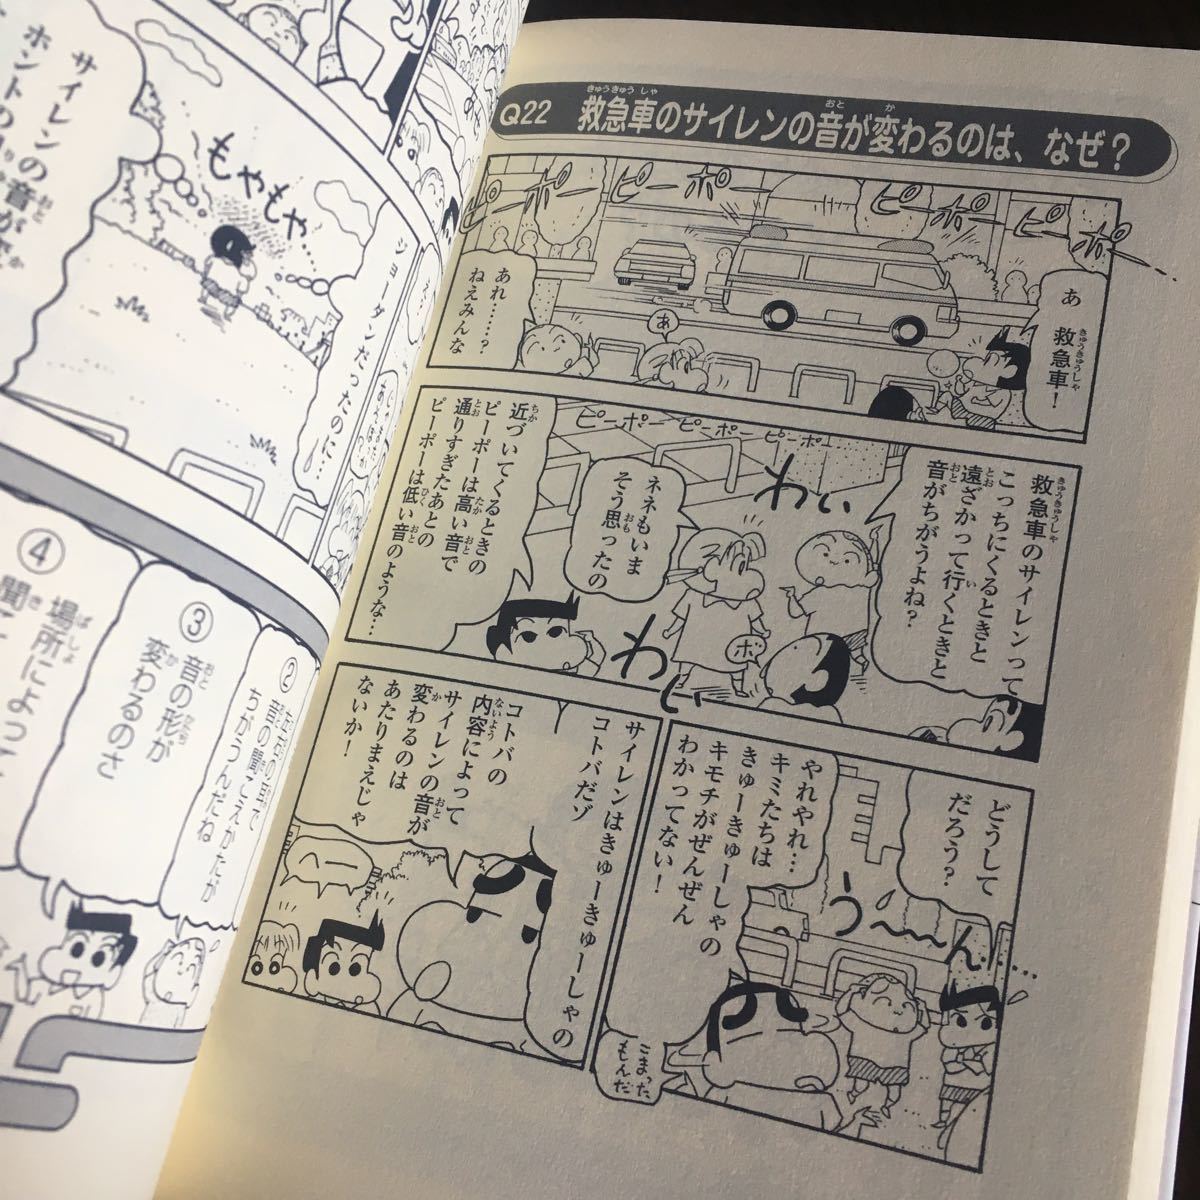 Q22 救急車のサイレンの音が変わるのは、なぜ？
きゅうきゅうしゃ
おと
か
ピーポー ピーポー ピーポー ピーポ
あ
救急車！
きゅうきゅうしゃ
あ
あれ……？
ねえみんな
救急車のサイレンって
きゅうきゅうしゃ
こっちにくるときと
遠ざかって行くときと
とお
い
音がちがうよね？
おと
ピーポー ピーポー ピーポー
わいわい
ネネもいま
そう思ったの
おも
ボ
近づいてくるときの
ちか
ピーポーは高い音で
たか
おと
通りすぎたあとの
とお
ピーポーは低い音のような…
ひく
おと
どうして
だろう？
う〜〜ん……
やれやれ…
キミたちは
きゅーきゅーしゃの
キモチがぜんぜん
わかってない！
こまった
もんだ
サイレンはきゅーきゅーしゃの
コトバだゾ
コトバの
内容によって
ないよう
サイレンの音が
おと
変わるのは
か
あたりまえじゃ
ないか！
へー
ジョーダンだったのに…
もやもや…
サイレンの音が変
おと
か
ホントの
②左右の耳で
音の聞こえかたが
ちがうんだね
③音の形が
おと
かたち
変わるのさ
か
④場所によって
ばしょ
聞こ
き